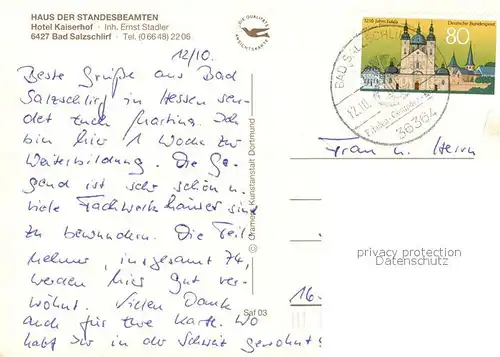 HAUS DER STANDESBEAMTEN
Hotel Kaiserhof · Inh. Ernst Stadler
6427 Bad Salzschlirf · Tel. (0 66 48) 22 06
DIE QUALITÄTS
ANSICHTSKARTE
1250 Jahre Fulda
Deutsche Bundespost
80
BAD SALZSCHLIRF
12.10.
36364
12/10.
Beste Grüße aus Bad
Salzschlirf in Hessen sen-
det Euch Martina. Ich
bin hier 1 Woche zur
Weiterbildung. Die Ge-
gend ist sehr schön u.
viele Fachwerkhäuser sind
zu bewundern. Die Teil
nehmer, insgesamt 74,
werden hier gut ver-
wöhnt. Vielen Dank
auch für Ihre Karte. Wo
habt Ihr in der Schweiz gewohnt?
© Cramers Kunstanstalt Dortmund
Saf 03
Frau u. Herrn
privacy protection
Datenschutz
16-